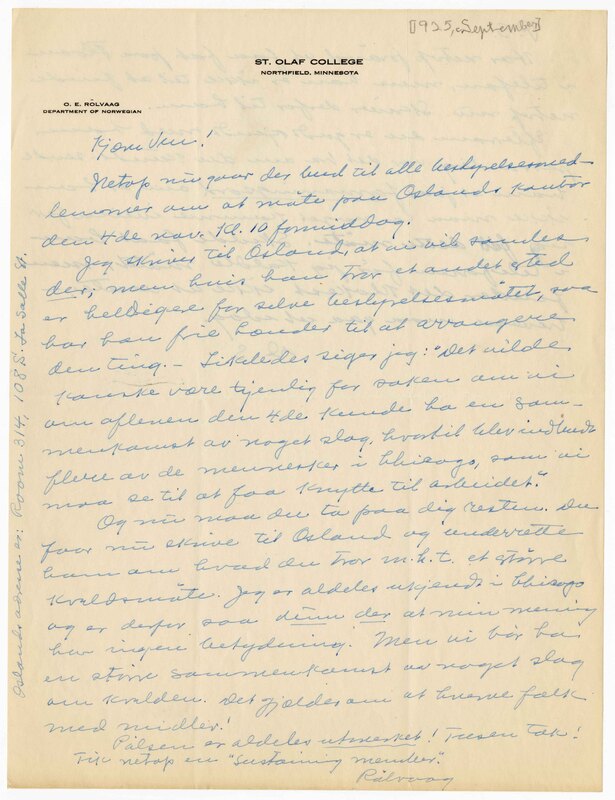 [1925, c. September]
ST. OLAF COLLEGE
NORTHFIELD, MINNESOTA
O. E. RÖLVAAG
DEPARTMENT OF NORWEGIAN
Kjære Ven!
Netop nu gaar der bud til alle bestyrelsesmed-
lemmer om at møte paa Oslands kontor
den 4de nov. Kl. 10 formiddag.
Jeg skriver til Osland, at vi vil samles
der; men hvis han tror et andet sted
er heldigere for selve bestyrelsesmötet, saa
har han frie hænder til at arrangere
den ting. — Likeledes siger jeg: "Det vilde
kanske være tjenlig for saken om vi
om aftenen den 4de kunde ha en sam-
menkomst av noget slag, hvortil blev indbudt
flere av de mennesker i Chicago, som vi
maa se til at faa knytte til arbeidet."
Og nu maa du ta paa dig resten. Du
faar nu skrive til Osland og underrette
ham om hvad du tror m.h.t. et större
kveldsmöte. Jeg er aldeles ukjendt i Chicago
og er derfor saa dum der at min mening
har ingen betydning. Men vi bör ha
en större sammenkomst av noget slag
om kvelden. Det gjælder om at hverve folk
med midler!
Pålsen er aldeles utmerket! Tusen tak!
Fik netop en "Sustaining member".
Rölvaag
Oslands adresse er: Room 314, 108 S. La Salle St.